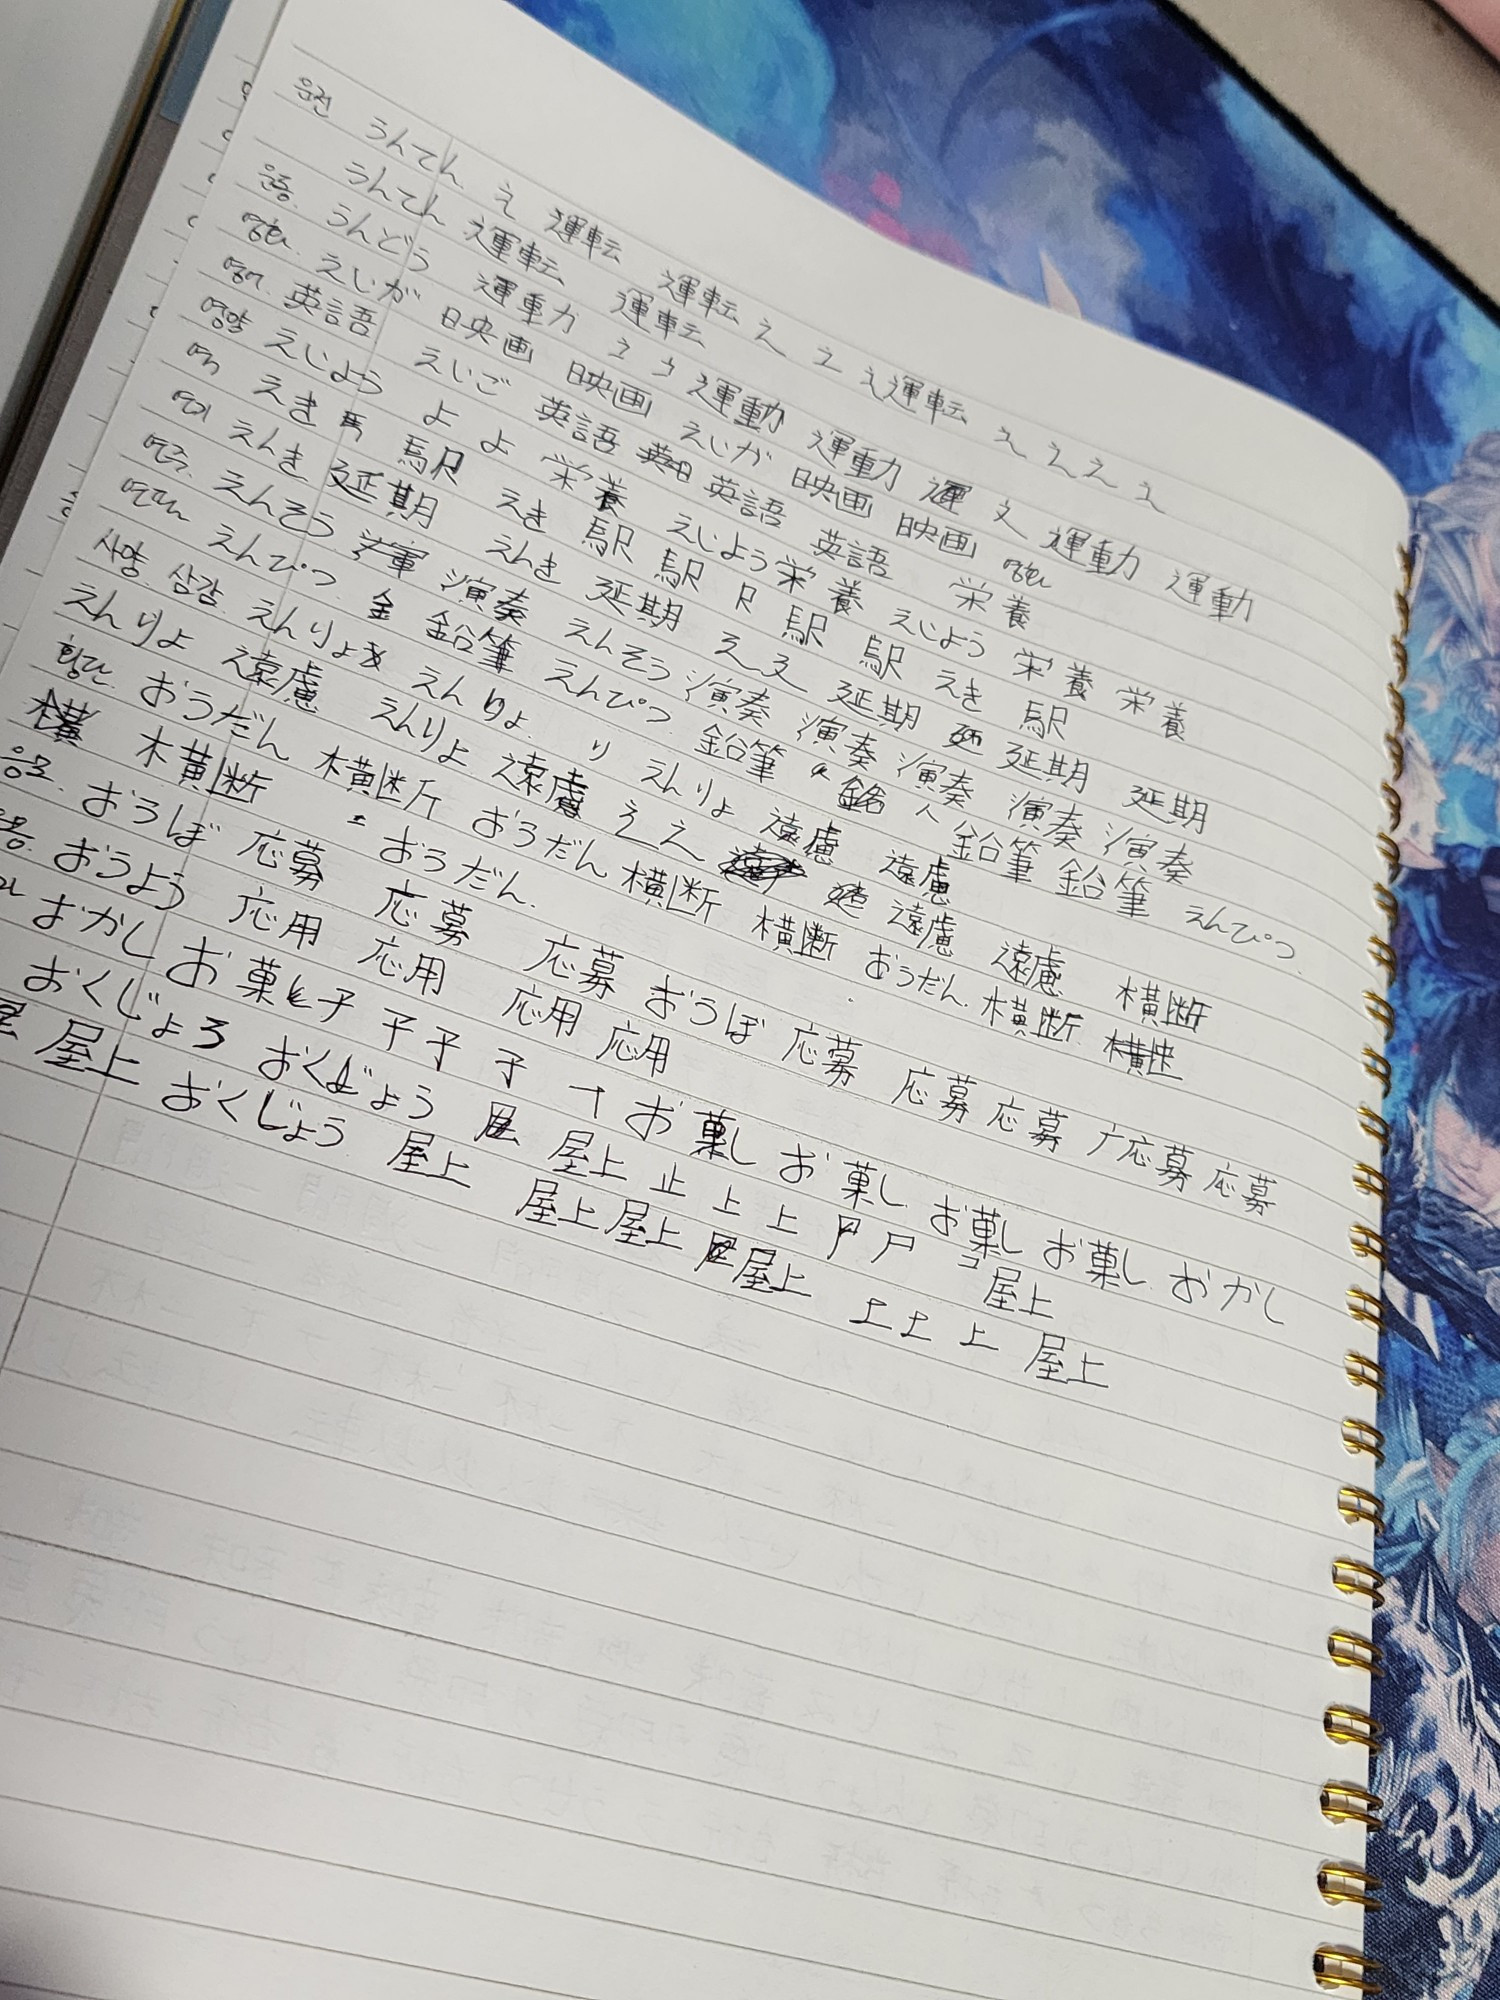 운전 うんてん え 運転 運転 え え え運転 え え え え
うんてん 運転 運転
운동. うんどう 運動 え う 運動 運動 運 え 運動 運動
영화. えいが 映画 映画 えいが 映画 映画 영화
영어. 英語 えいご 英語 英語 英語
영양 えじよう よ よ 栄養 えじよう 栄養 えじよう 栄養 栄養
역 えき 馬 駅 えき 駅 駅 R 駅 駅 えき 駅
연기 えんき 延期 えんき 延期 え え 延期 延期 延期
연주. えんそう 演奏 えんそう 演奏 演奏 演奏 演奏
연필 えんぴつ 金 鉛筆 えんぴつ 鉛筆 鉛筆 鉛筆 えんぴつ
사양. 삼감. えんりょ えんりょ. り えんりょ 遠慮 遠慮
えんりよ 遠慮 えんりよ 遠慮 え え 遠慮 遠慮
횡단. おうだん 横断 おうだん 横断 横断 おうだん. 横断 横
横 横断 おうだん. 横断
응모. おうぼ 応募 応募 応募 おうぼ 応募 応募 応募 応募
응용. おうよう 応用 応用 応用 応用
おかし お菓子 子 子 子 お菓し お菓し お菓し お菓し おかし
おくじょう おくじょう 屋上 止 上 上 尸 屋上
屋上 おくじょう 屋上 屋上 屋上 屋上 上 上 上 屋上